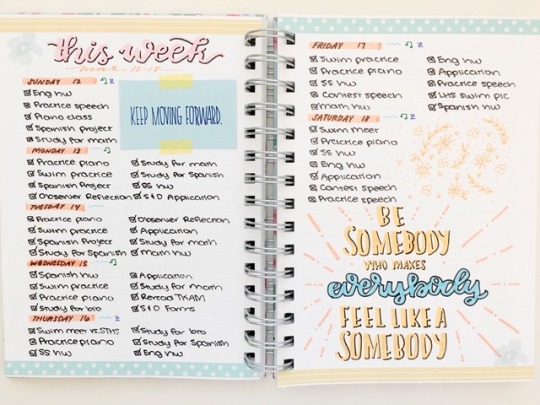 this week
Sunday 12
Eng hw
Practice speech
Piano class
Spanish project
Study for math
KEEP MOVING FORWARD.
Monday 13
Practice piano
Swim practice
Spanish Project
Observer Reflection
Study for math
Study for Spanish
SS hw
S&O Application
Tuesday 14
Practice piano
Swim practice
Spanish Project
Study for Spanish
Observer Reflection
Application
Study for math
Math hw
Wednesday 15
Spanish hw
Swim practice
Practice piano
Study for bio
Application
Study for math
Reread TKAM
S&O Forms
Thursday 16
Swim meet vs. STHS
Practice piano
SS hw
Study for bio
Study for Spanish
Eng hw
Friday 17
Swim practice
Practice piano
SS hw
Contest speech
Math hw
Eng hw
Application
Practice speech
LHS swim pic
Spanish hw
Saturday 18
Swim meet
Practice piano
SS hw
Eng hw
Application
Contest speech
Practice speech
BE
SOMEBODY
WHO MAKES
everybody
FEEL LIKE A
SOMEBODY